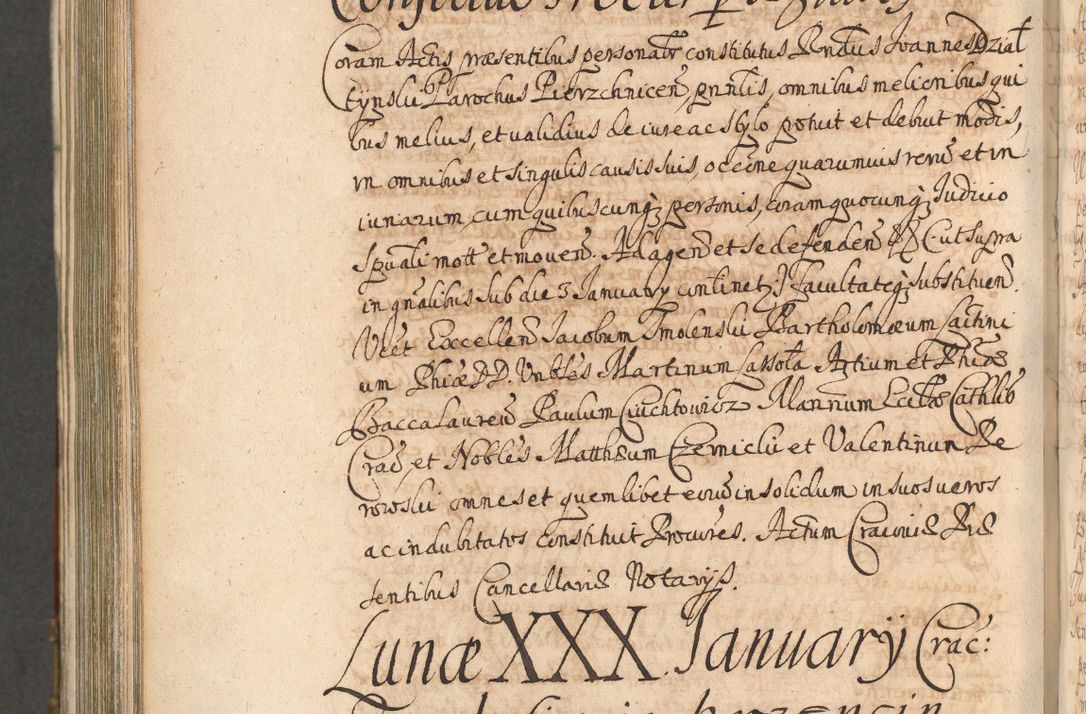 Coram Actis præsentibus personalr constitutus Rndus Joannes Dział
tynski Parochus Pierzchnicen, gnnlis, omnibus melioribus qui
bus melius, et validius de iure ac stylo potuit et debuit modis,
in omnibus et singulis causis suis, occone quarumuis reru et in
iuriarum, cum quibuscunq; personis, coram quocunq; Iudicio
spuali mott et mouen. Ad agen et se defenden &c ut supra
in gnalibus sub die 3 January continet; Facultateq; substituen.
Vt et Excellen Jacobum Smolenski Bartholomæum
um Phiæ D.D. Vnbles Martinum Artium et Phiæ
Baccalaureu Paulum Eccliæ Cathlis
Crac et Nobles Matthæum Czernicki et Valentinum Re
rowski omnes et quemlibet eoru in solidum in suos veros
ac indubitatos constituit Procures. Actum Cracouiæ Præ
sentibus Cancellariæ Notarijs.
Lunæ XXX January Crac: